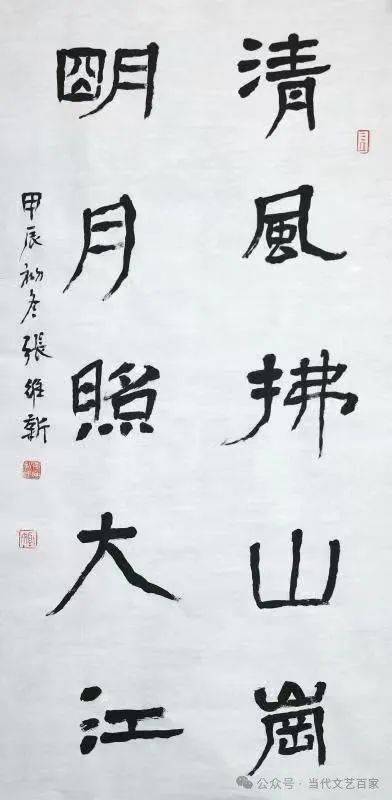 清風拂山崗
明月照大江
甲辰初冬張維新
公众号 · 当代文艺百家